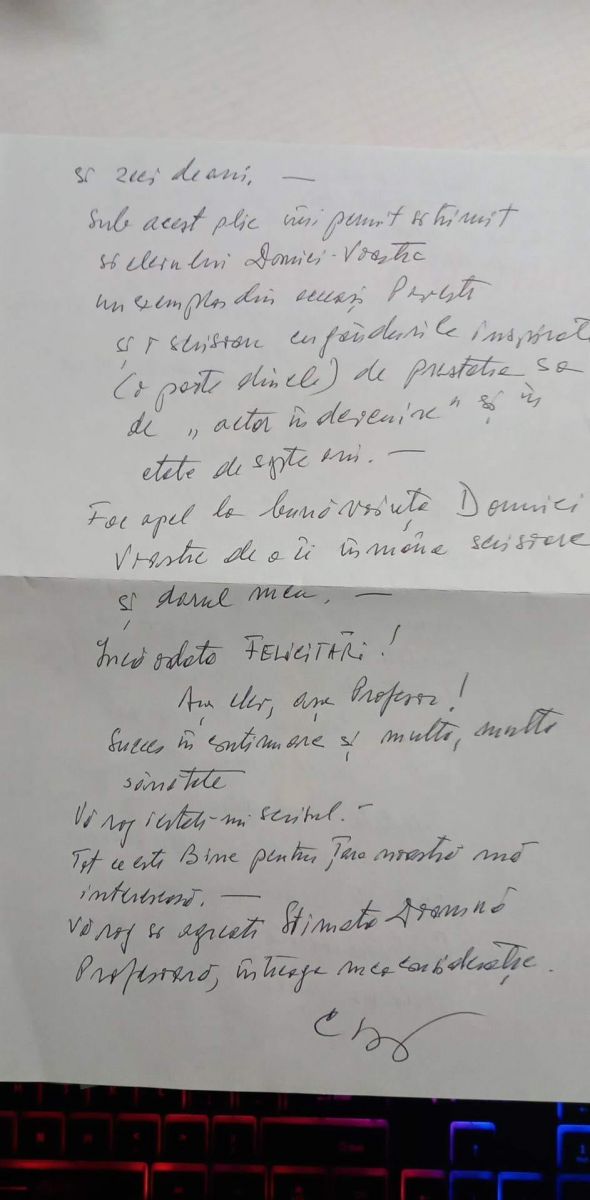 și zeci de ani. —
Sub acest plic îmi permit să trimit
și elevului Domniei-Voastre
un exemplar din aceeași Poveste
și o scrisoare cu gândurile inspirate
(o parte din ele) de prestația sa
de „actor în devenire" și în
etate de șapte ani. —
Fac apel la bunăvoința Domniei
Voastre de a îi înmâna scrisoarea
și darul meu. —
Încă odată FELICITĂRI!
Așa elev, așa Profesor!
Succes în continuare și multă, multă
sănătate
Vă rog iertați-mi scrisul. -
Tot ce este Bine pentru Țara noastră mă
interesează. —
Vă rog să agreați Stimată Doamnă
Profesoară, întreaga mea considerație.